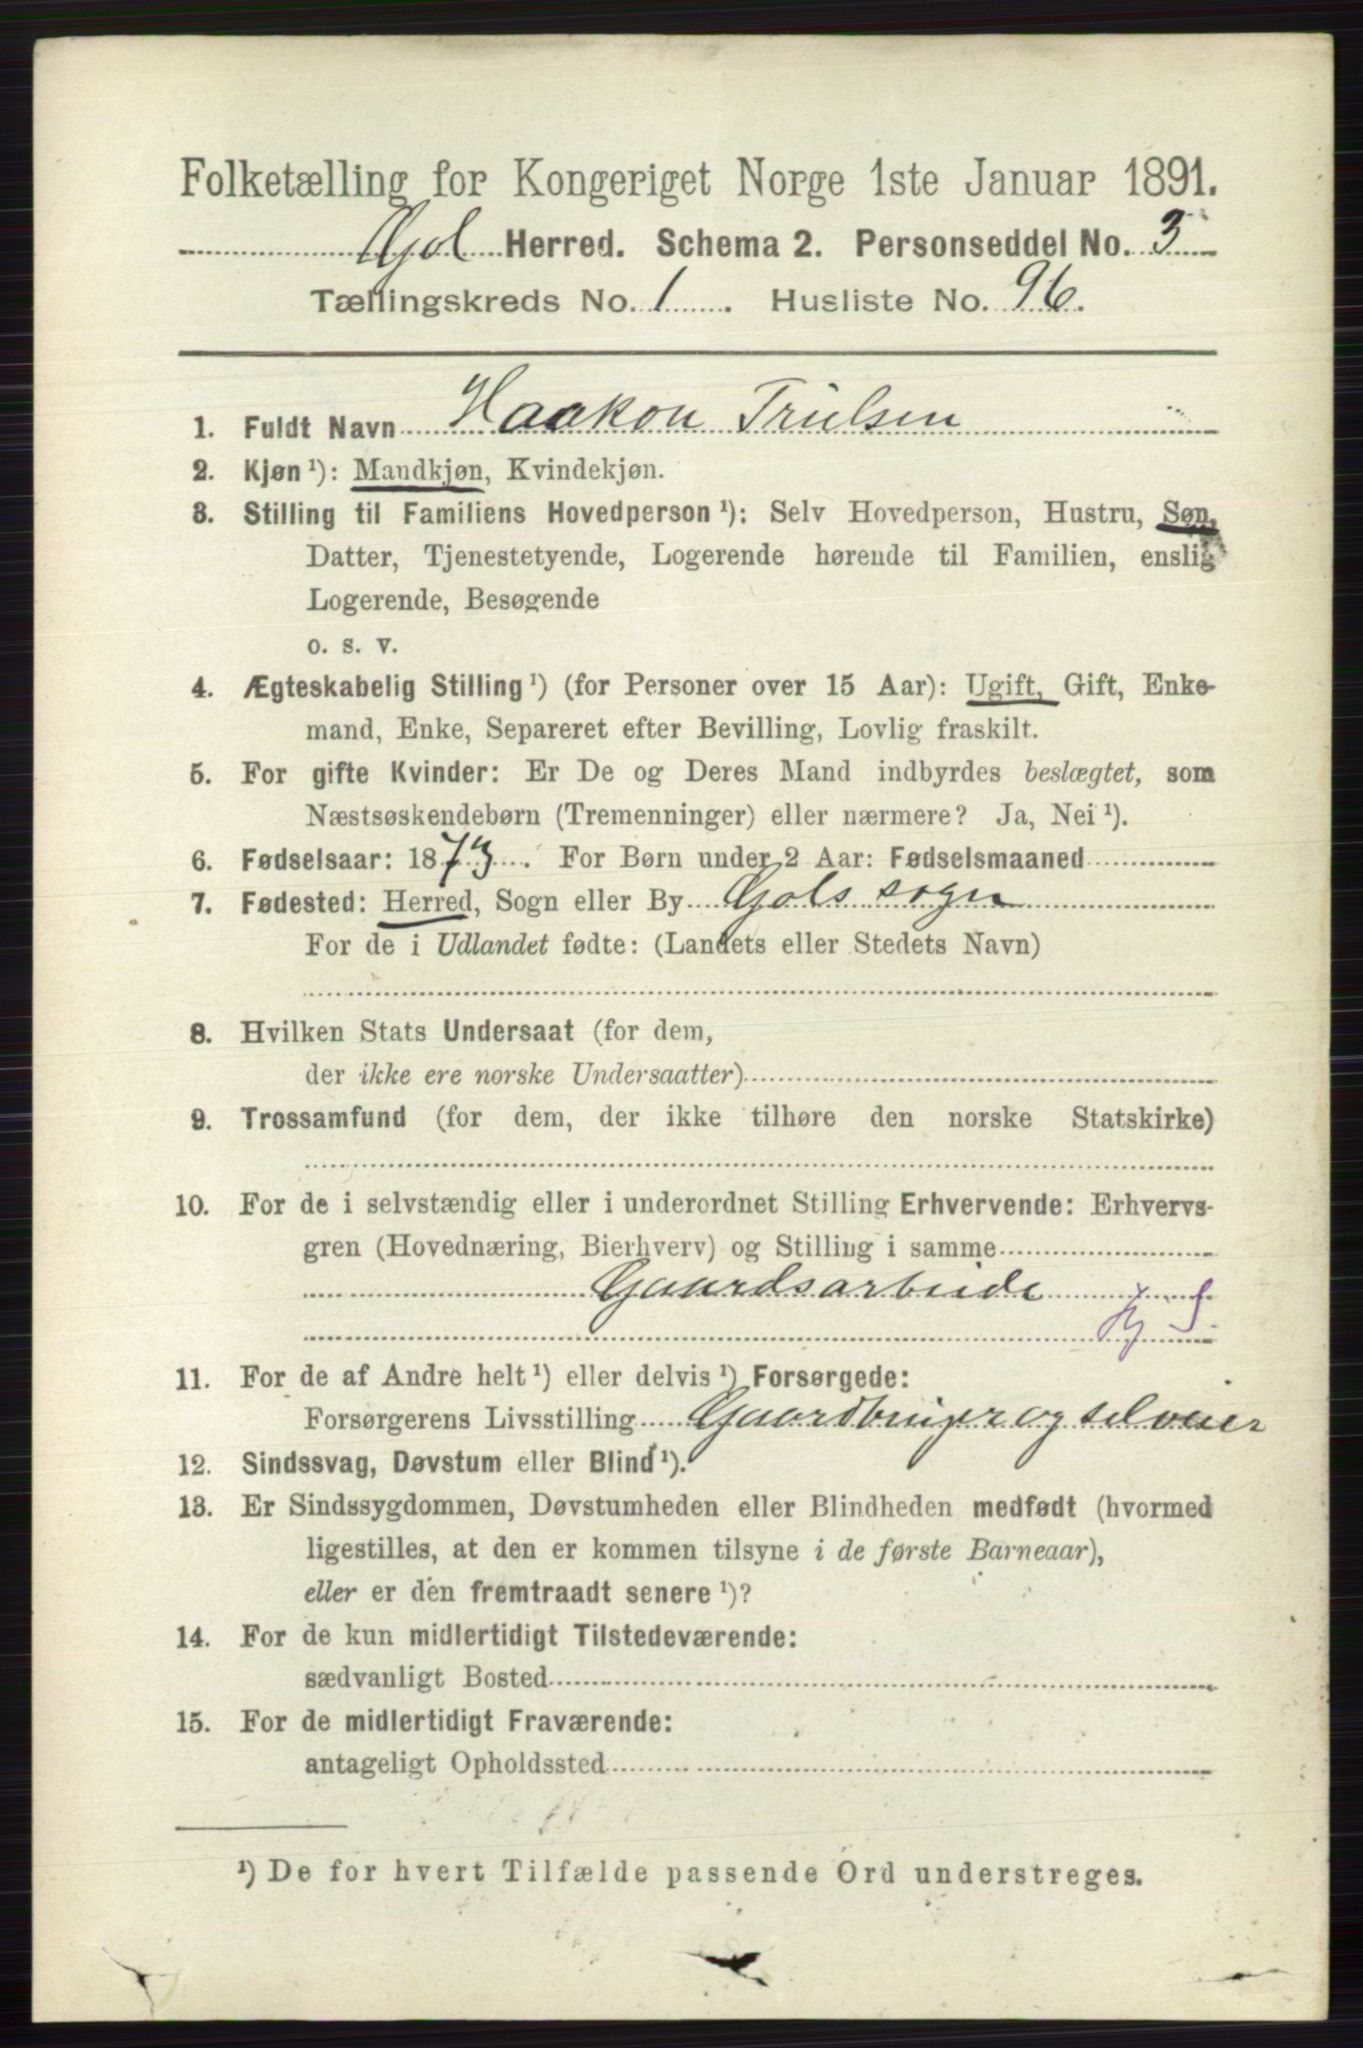 Folketælling for Kongeriget Norge 1ste Januar 1891.
Gol Herred. Schema 2. Personseddel No. 3
Tællingskreds No. 1. Husliste No. 96.
1. Fuldt Navn Haakon Trulsen
2. Kjøn ¹): Mandkjøn, Kvindekjøn.
3. Stilling til Familiens Hovedperson ¹): Selv Hovedperson, Hustru, Søn,
Datter, Tjenestetyende, Logerende hørende til Familien, enslig
Logerende, Besøgende
o. s. v.
4. Ægteskabelig Stilling ¹) (for Personer over 15 Aar): Ugift, Gift, Enke-
mand, Enke, Separeret efter Bevilling, Lovlig fraskilt.
5. For gifte Kvinder: Er De og Deres Mand indbyrdes beslægtet, som
Næstsøskendebørn (Tremenninger) eller nærmere? Ja, Nei ¹).
6. Fødselsaar: 1873. For Børn under 2 Aar: Fødselsmaaned
7. Fødested: Herred, Sogn eller By Gols sogn
For de i Udlandet fødte: (Landets eller Stedets Navn)
8. Hvilken Stats Undersaat (for dem,
der ikke ere norske Undersaatter)
9. Trossamfund (for dem, der ikke tilhøre den norske Statskirke)
10. For de i selvstændig eller i underordnet Stilling Erhvervende: Erhvervs-
gren (Hovednæring, Bierhverv) og Stilling i samme
Gaardsarbeide
11. For de af Andre helt ¹) eller delvis ¹) Forsørgede:
Forsørgerens Livsstilling Gaardbruger og selveier
12. Sindssvag, Døvstum eller Blind ¹).
13. Er Sindssygdommen, Døvstumheden eller Blindheden medfødt (hvormed
ligestilles, at den er kommen tilsyne i de første Barneaar),
eller er den fremtraadt senere ¹)?
14. For de kun midlertidigt Tilstedeværende:
sædvanligt Bosted
15. For de midlertidigt Fraværende:
antageligt Opholdssted
¹) De for hvert Tilfælde passende Ord understreges.